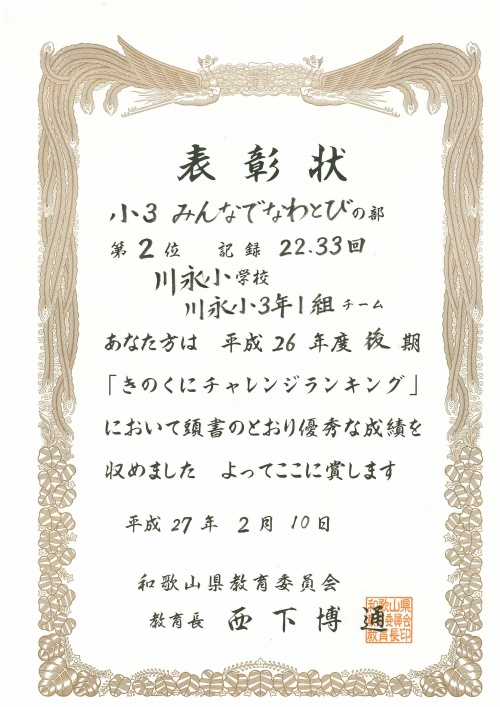 表彰状
小3 みんなでなわとびの部
第2位 記録 22.33回
川永小学校
川永小3年1組チーム
あなた方は 平成26年度後期
「きのくにチャレンジランキング」
において頭書のとおり優秀な成績を
収めました よってここに賞します
平成27年2月10日
和歌山県教育委員会
教育長 西下博通
和歌山県
教育委員会
教育長印